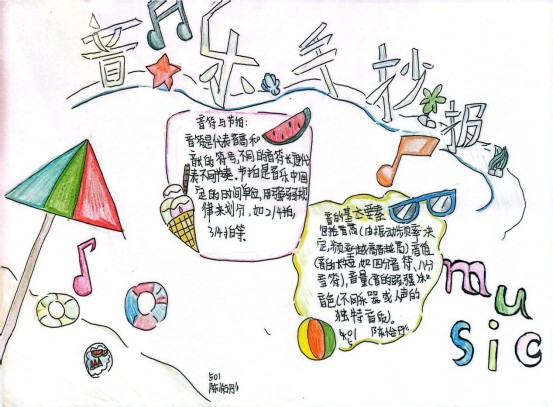 音乐手抄报
音符与节拍:
音符是代表音高和
音长的符号,不同的音符长度代
表不同节奏。节拍是音乐中固
定的时间单位,用强弱规
律来划分,如2/4拍,
3/4拍等
音的基本要素
包括音高(由振动频率决
定,频率越高音越高)音值
(音的长短,如四分音符、八分
音符),音量(音的强弱)和
音色(不同乐器或人声的
独特音质)。
501
501
music